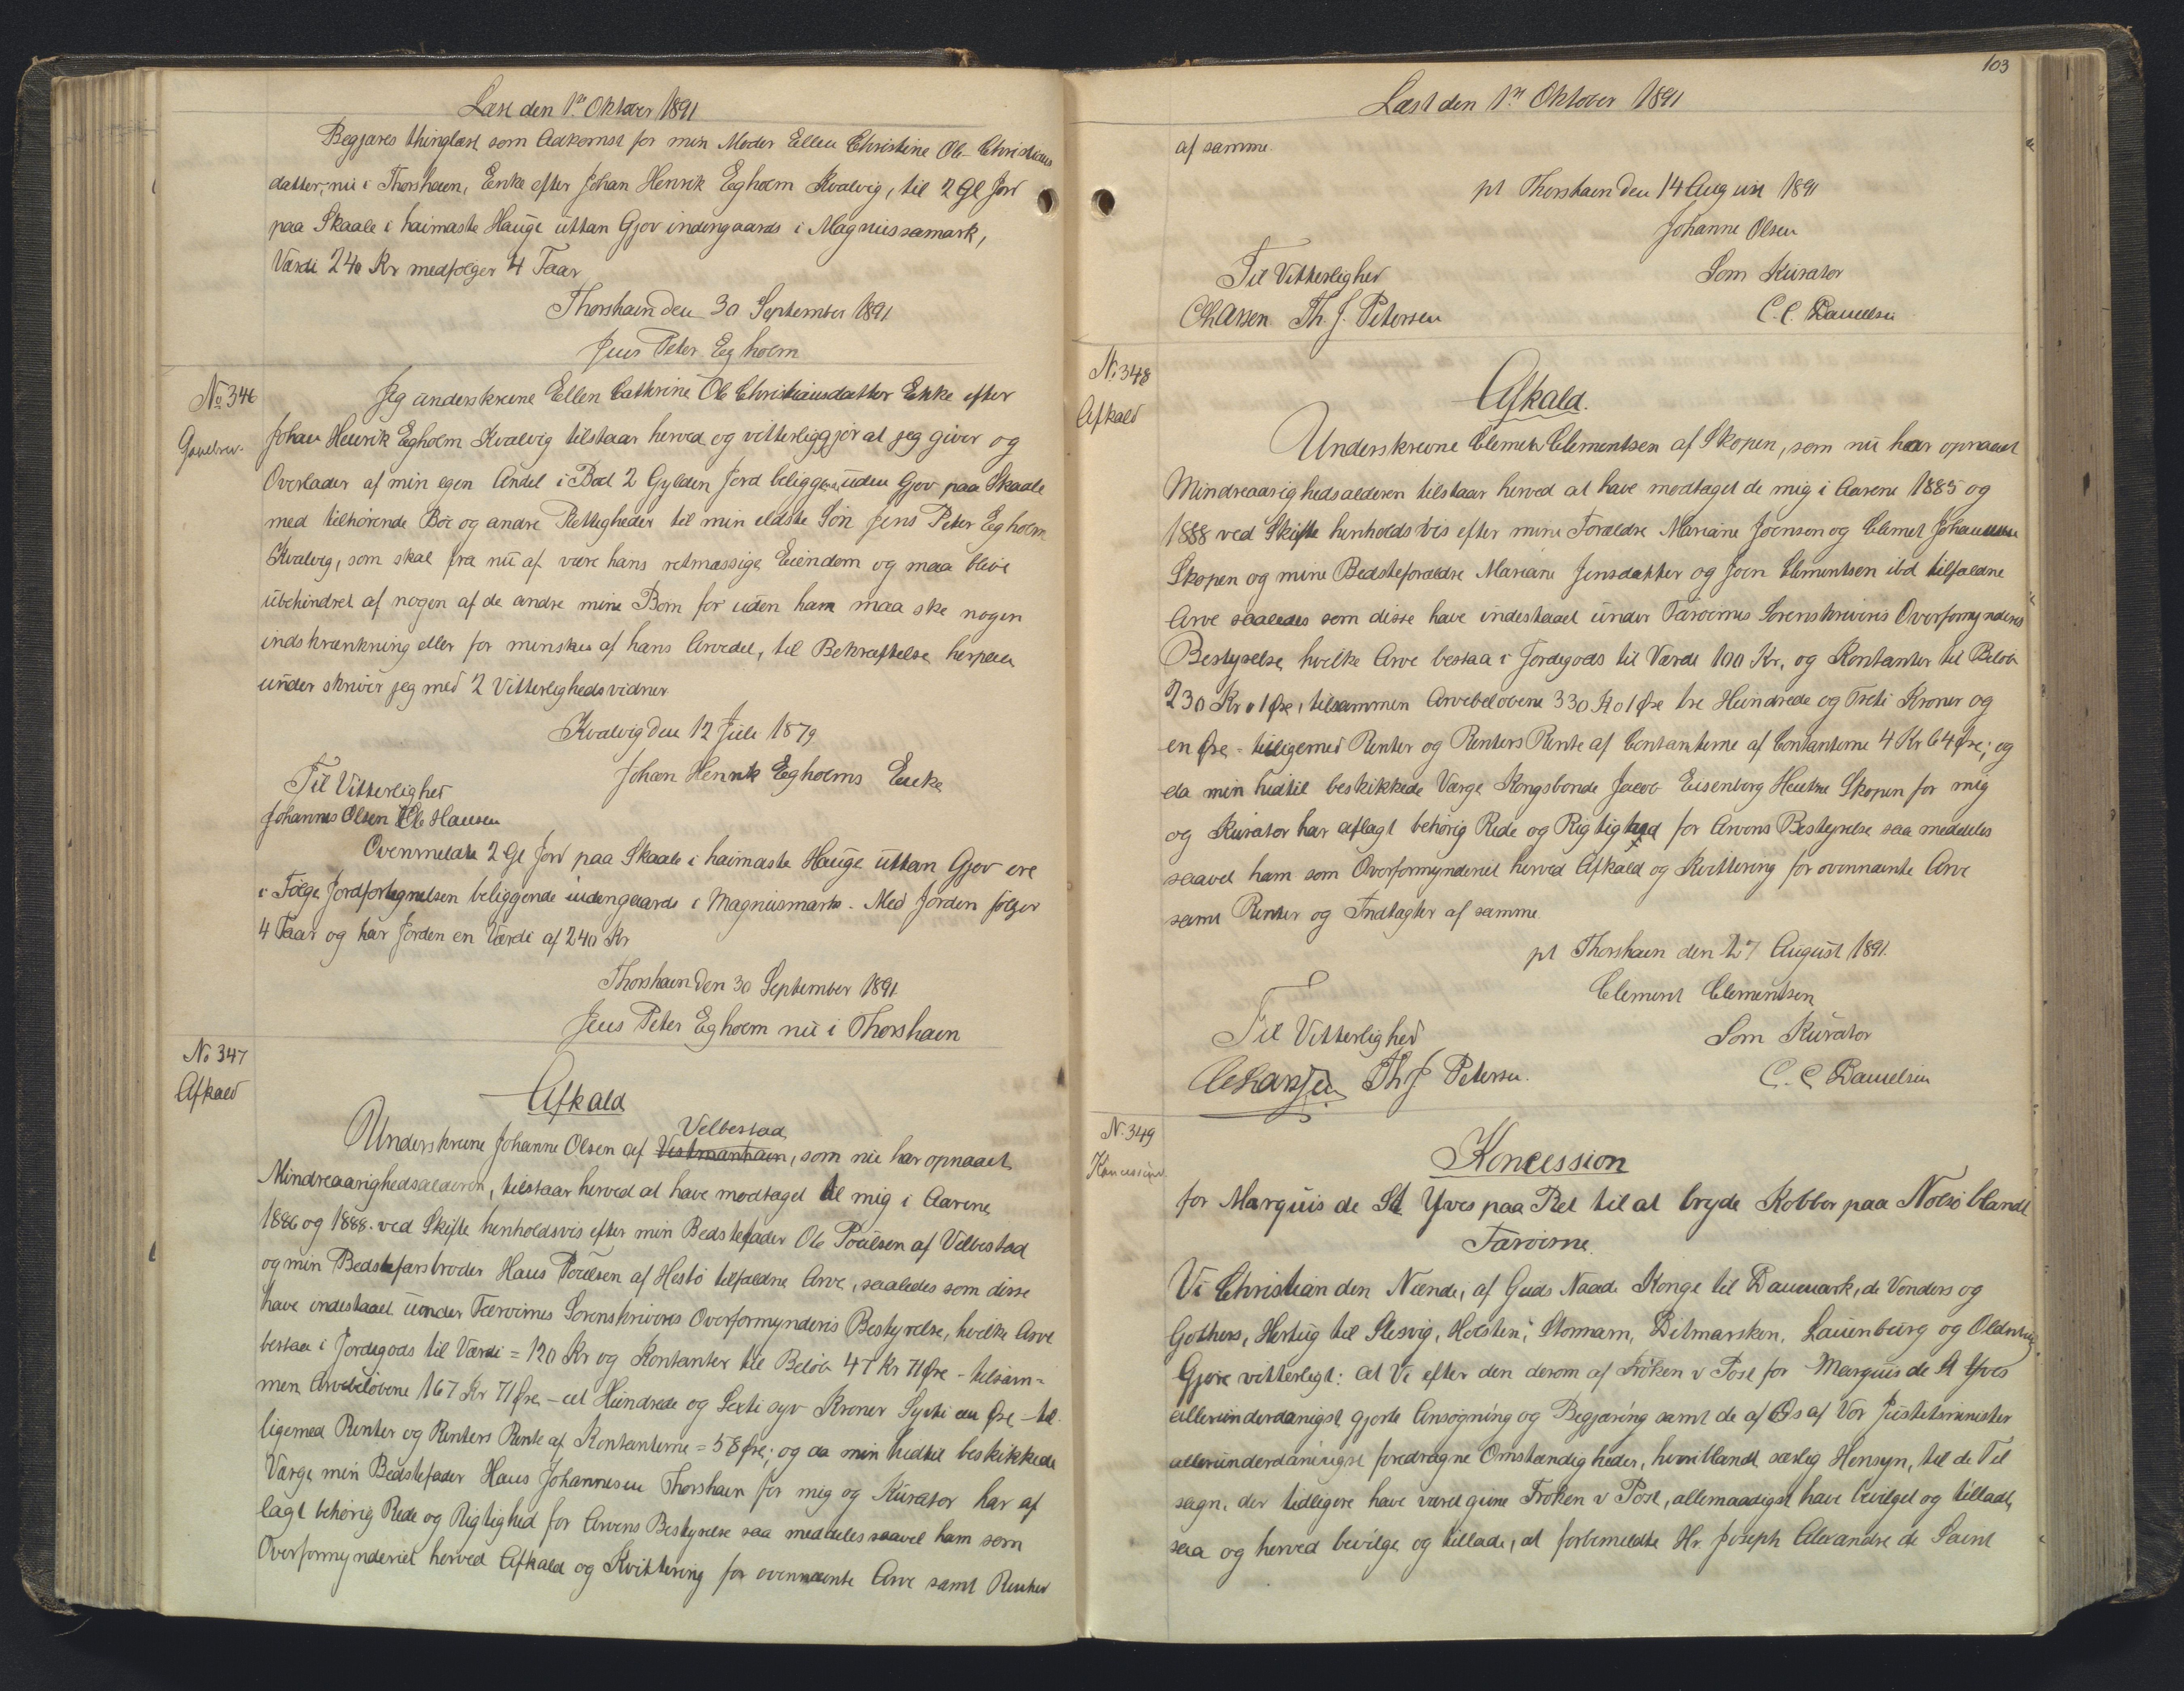 Læst den 1ste Oktober 1891
Begjæres thinglæst som Adkomst for min Moder Ellen Christine Ole Christians
datter, nu i Thorshavn, Enke efter Johan Henrik Egholm Kvalvig, til 2 Gl Jord
paa Skaale i haimasta Hauge uttan Gjov indengaards i Magnussamark,
Værdi 240 Kr medfølger 4 Faar
Thorshavn den 30 September 1891
Jens Peter Egholm
No 346
Gavebrev.
Jeg underskrevne Ellen Cathrine Ole Christiansdatter Enke efter
Johan Henrik Egholm Kvalvig tilstaar herved og vitterliggjør at jeg giver og
Overlader af min egen Andel i Bød 2 Gylden Jord beliggende uden Gjov paa Skaale
med tilhørende Bøe og andre Rettigheder til min eldste Søn Jens Peter Egholm
Kvalvig, som skal fra nu af være hans retmæssige Eiendom og maa blive
ubehindret af nogen af de andre mine Børn for uden ham maa ske nogen
indskrænkning eller for minskes af hans Arvedel, til Bekræftelse herpaa
under skriver jeg med 2 Vitterligheds vidner
Kvalvig den 12 Juli 1879
Johan Henrik Egholms Enke
Til Vitterlighed
Johannes Olsen Ole Hansen
Ovenmeldte 2 Gl Jord paa Skaale i haimasta Hauge uttan Gjov ere
i Følge Jordfortegnelsen beliggende indengaards i Magnusmark. Med Jorden følger
4 Faar og har Jorden en Værdi af 240 Kr
Thorshavn den 30 September 1891
Jens Peter Egholm nu i Thorshavn
No 347
Afkald
Afkald
Velbestad
Underskrevne Johanne Olsen af Vestmanhavn, som nu har opnaaet
Mindreaarighedsalderen, tilstaar herved at have modtaget til mig i Aarene
1886 og 1888 ved Skifte henholdsvis efter min Bedstefader Ole Poulsen af Velbestad
og min Bedstefarsbroder Hans Poulsen af Hestø tilfaldne Arve, saaledes som disse
have indestaaet under Færøernes Sorenskriveres Overformynderis Bestyrelse, hvilke Arve
bestaa i Jordegods til Værdi = 120 Kr og Kontanter til Beløb 47 Kr 71 Øre - tilsam=
men Arvebeløbene 167 Kr 71 Øre - et Hundrede og Sexti syv Kroner Syvti en Øre - til
ligemed Renter og Renters Rente af Kontanterne = 58 Øre; og da min hidtil beskikkede
Værge min Bedstefader Hans Johannesen Thorshavn for mig og Kurator har af
lagt behørig Rede og Rigtighed for Arvens Bestyrelse saa meddeles saavel ham som
Overformynderiet herved Afkald og Kvittering for ovennævnte Arve samt Renter
103
Læst den 1ste Oktober 1891
af samme.
pt Thorshavn den 14 August 1891
Johanne Olsen
Til Vitterlighed
Som Kurator
Th. J. Petersen
C. C. Danielsen
No 348
Afkald
Afkald.
Underskrevne Clement Clementsen af Skopen, som nu har opnaaet
Mindreaarighedsalderen tilstaar herved at have modtaget de mig i Aarene 1885 og
1888 ved Skifte henholdsvis efter mine Forældre Mariane Joensen og Clemet Johannesen
Skopen og mine Bedsteforældre Mariane Jensdatter og Joen Clementsen ibd tilfaldne
Arve saaledes som disse have indestaaet under Færøernes Sorenskriveris Overformynderies
Bestyrelse hvilke Arve bestaa i Jordegods til Værdi 100 Kr, og Kontanter til Beløb
230 Kr 01 Øre, tilsammen Arvebeløbene 330 Kr 01 Øre tre Hundrede og Treti Kroner og
en Øre - tilligemed Renter og Renters Rente af Contanterne af Contanterne 4 Kr 64 Øre; og
da min hidtil beskikkede Værge Kongsbonde Jacob Eisenborg Skopen for mig
og Kurator har aflagt behørig Rede og Rigtighed for Arvens Bestyrelse saa meddeles
saavel ham som Overformynderiet herved Afkald og Kvittering for ovennævnte Arve
samt Renter og Indtægter af samme
pt Thorshavn den 27 August 1891.
Clement Clementsen
Til Vitterlighed
Som Kurator
Th J Petersen.
C. C Danielsen
No. 349
Koncession
Koncession
for Marquis de St Yves paa Ret til at bryde Kobber paa Nolsø blandt
Færøerne.
Vi Christian den Niende, af Guds Naade Konge til Danmark, de Venders og
Gothers, Hertug til Slesvig, Holsten, Stormarn, Ditmarsken, Lauenburg og Oldenburg
Gjøre vitterligt: At Vi efter den derom af Frøken v Post for Marquis de St Yves
allerunderdanigst gjorte Ansøgning og Begjæring samt de af Os af Vor Justitsminister
allerunderdanigst foredragne Omstændigheder, hvoriblandt særlig Hensyn, til de Til
sagn, der tidligere have været givne Frøken v Post, allernaadigst have bevilget og tilladt,
saa og herved bevilge og tillade, at forbemeldte Hr. Joseph Alexandre de Saint